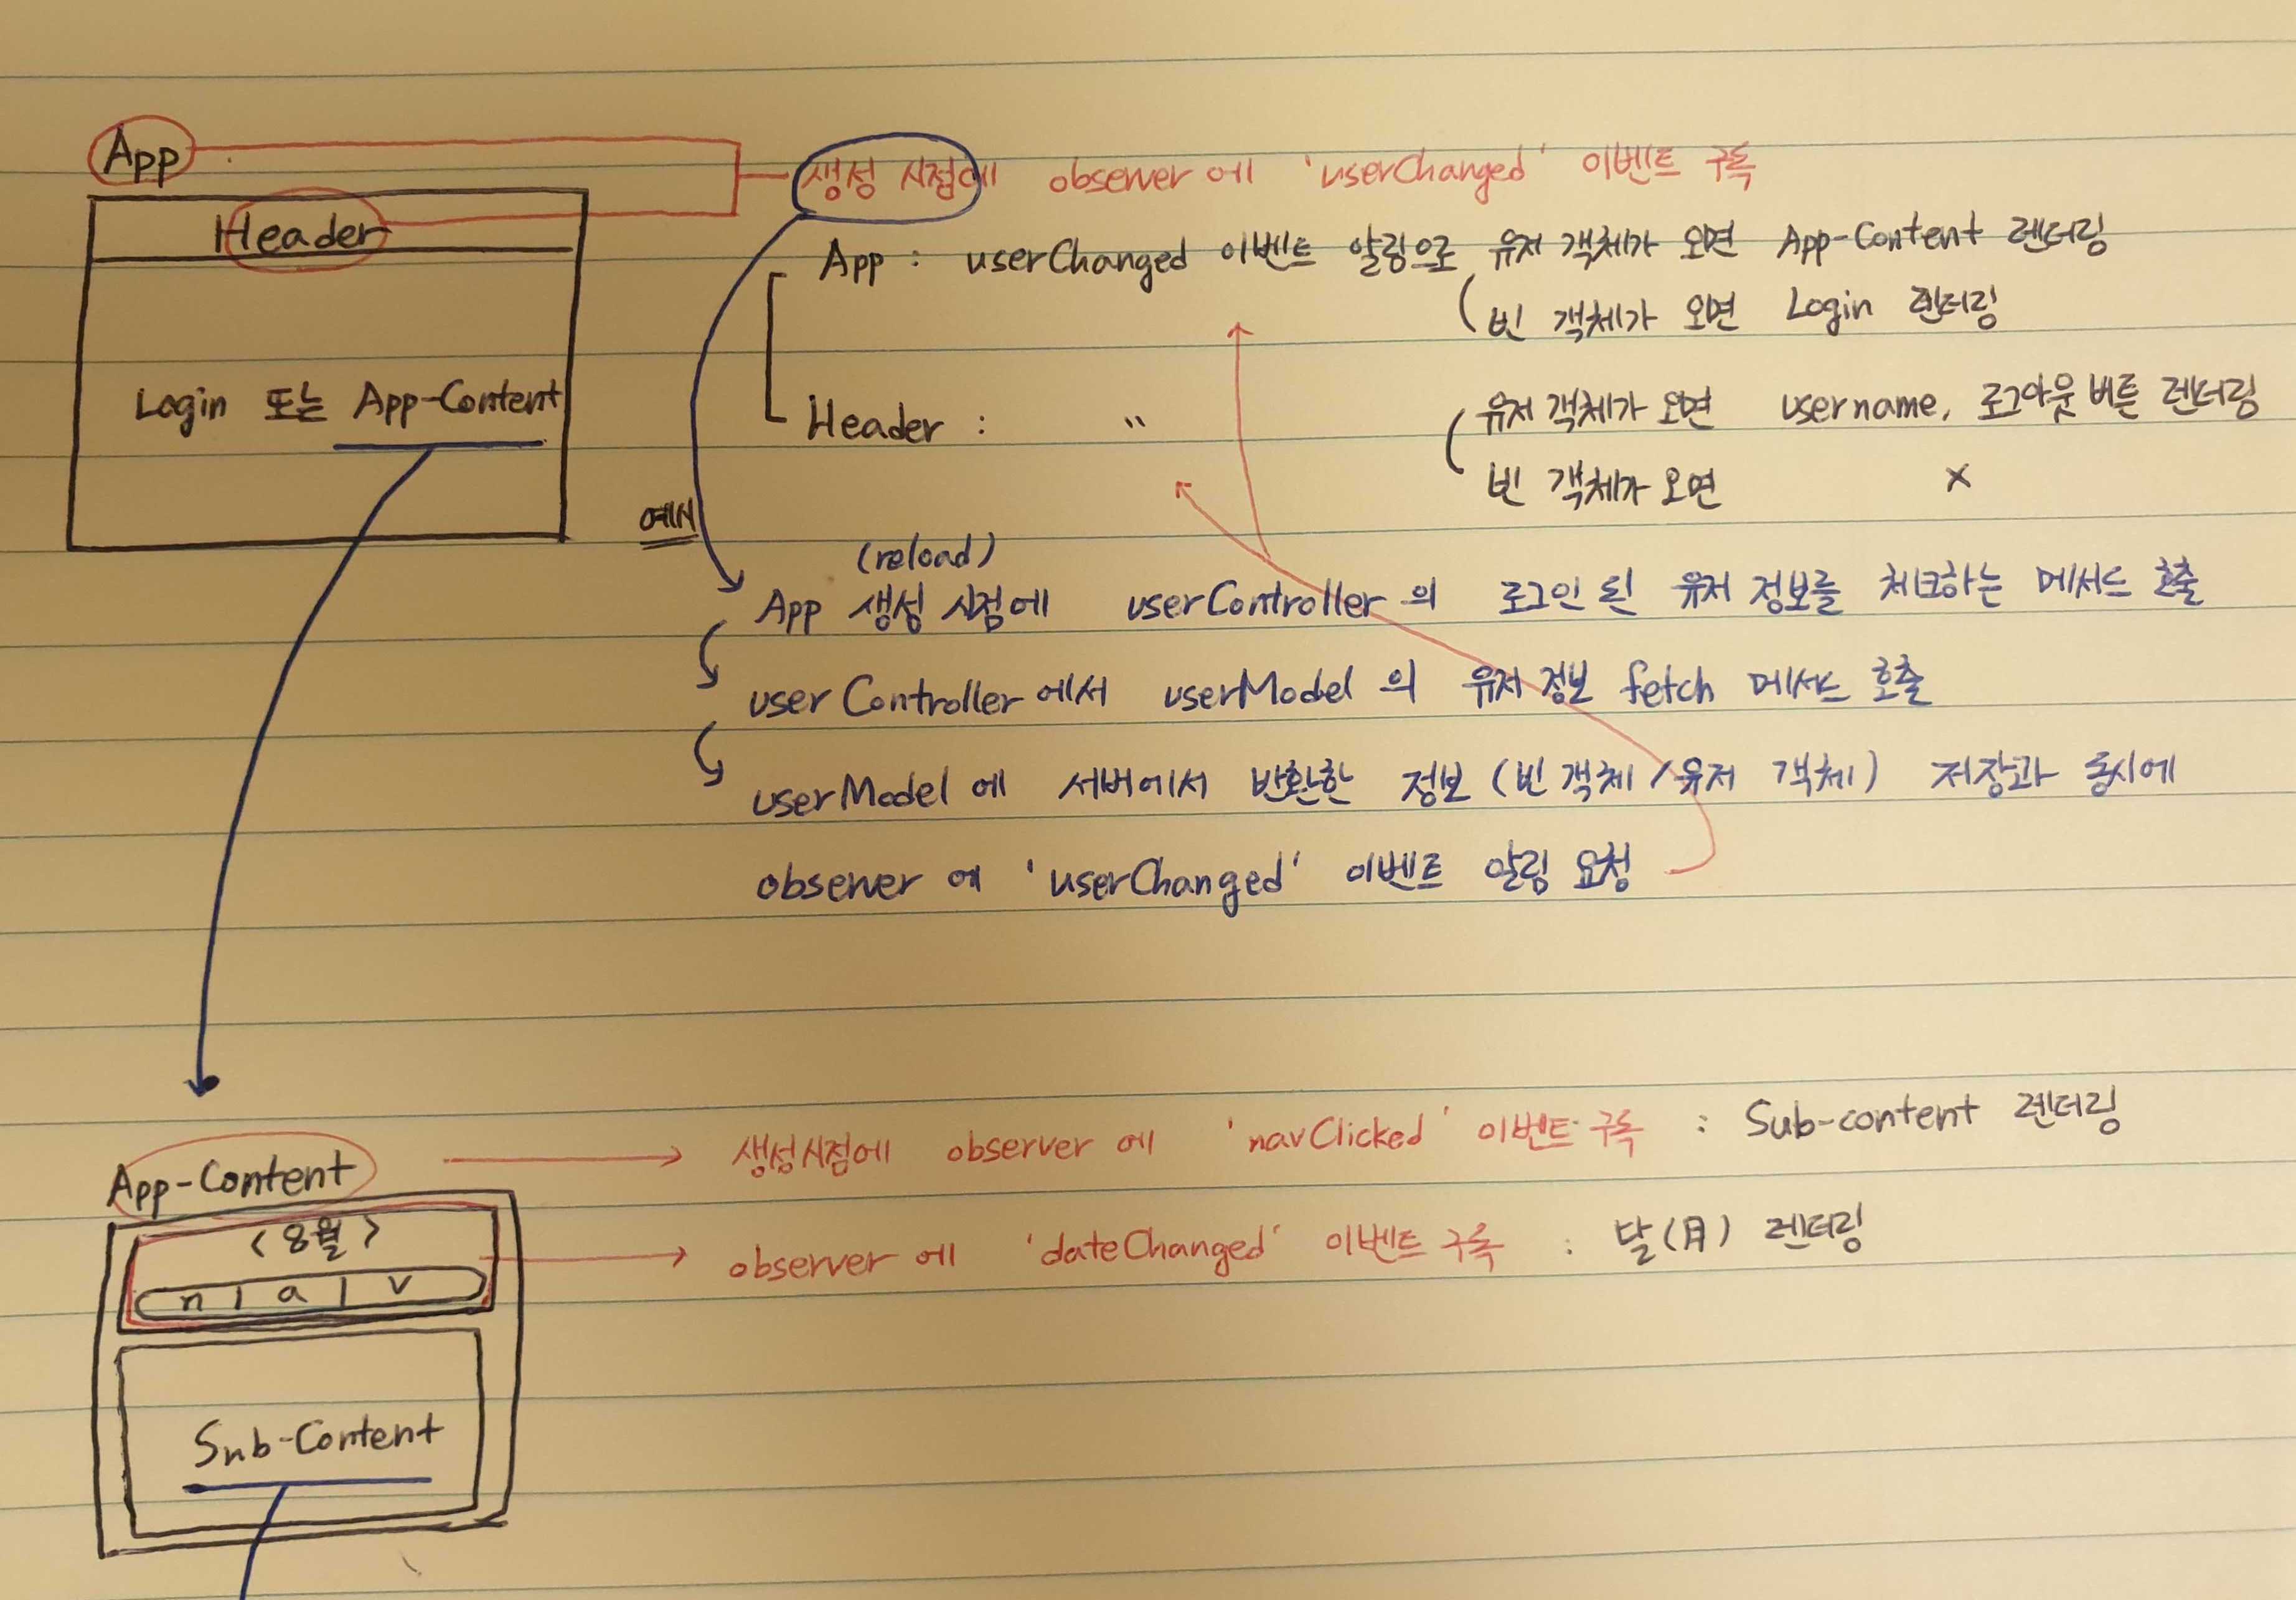 App
생성 시점에 observer에 'userChanged' 이벤트 구독
Header
App : userChanged 이벤트 알림으로 유저 객체가 오면 App-Content 렌더링
빈 객체가 오면 Login 렌더링
Login 또는 App-Content
Header : " 유저 객체가 오면 username, 로그아웃 버튼 렌더링
빈 객체가 오면 X
예시
(reload)
App 생성 시점에 userController의 로그인 된 유저 정보를 체크하는 메서드 호출
userController에서 userModel의 유저 정보 fetch 메서드 호출
userModel에 서버에서 반환한 정보 (빈 객체/유저 객체) 저장과 동시에
observer에 'userChanged' 이벤트 알림 요청
App-Content
생성시점에 observer에 'navClicked' 이벤트 구독 : Sub-content 렌더링
< 8월 >
observer에 'dateChanged' 이벤트 구독 : 달(月) 렌더링
n | a | v
Sub-Content